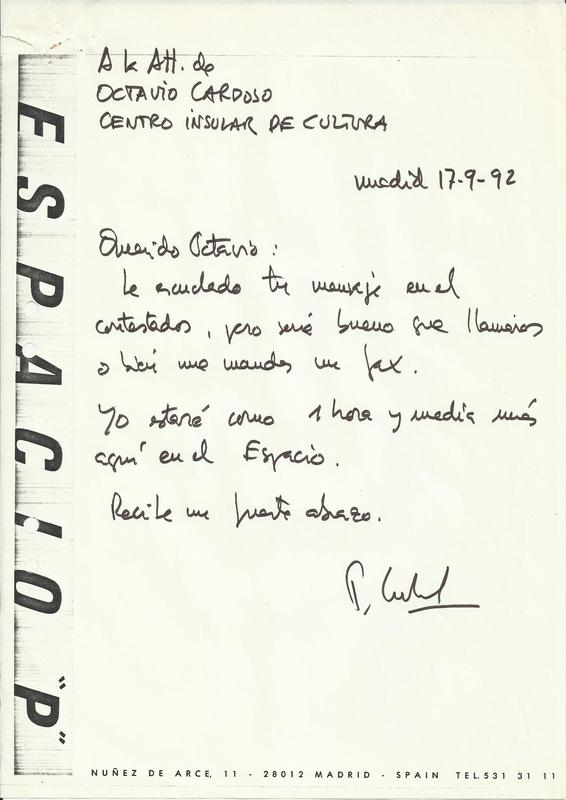 ESPACIO "P"
A la Att. de
OCTAVIO CARDOSO
CENTRO INSULAR DE CULTURA
Madrid 17-9-92
Querido Octavio:
He escuchado tu mensaje en el
contestador, pero será bueno que llamaras
o bien me mandes un fax.
Yo estaré como 1 hora y media más
aquí en el Espacio.
Recibe un fuerte abrazo.
NUÑEZ DE ARCE, 11 - 28012 MADRID - SPAIN TEL. 531 31 11